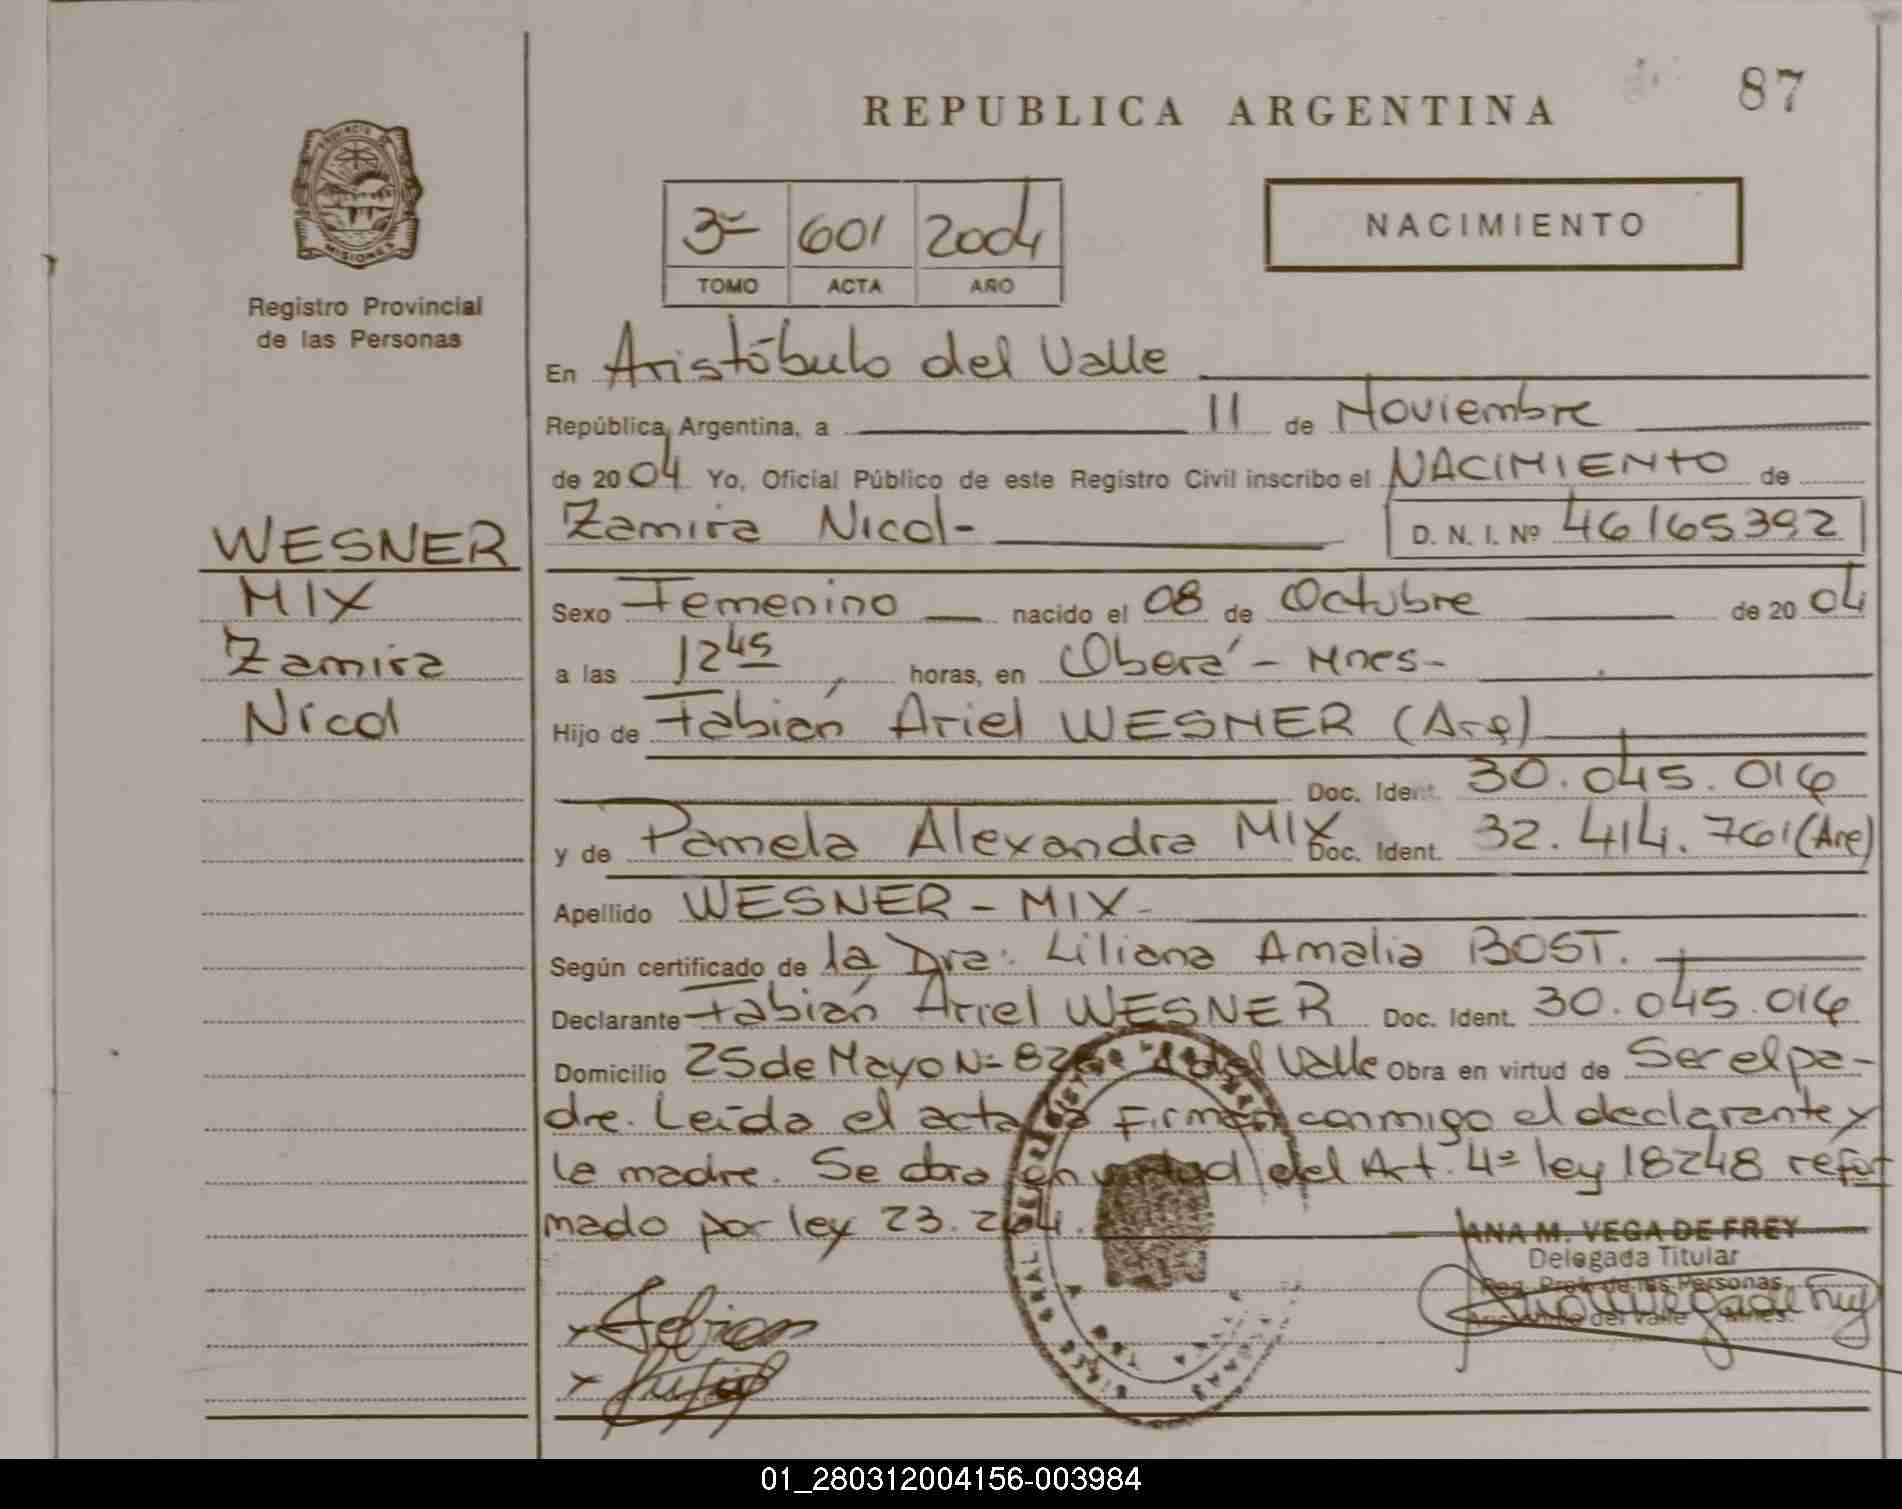 87
REPUBLICA ARGENTINA
PROVINCIA DE
MISIONES
Registro Provincial
de las Personas
3º 601 2004
TOMO ACTA AÑO
NACIMIENTO
En Aristóbulo del Valle
República Argentina, a 11 de Noviembre
de 2004 Yo, Oficial Público de este Registro Civil inscribo el NACIMIENTO de
Zamira Nicol- D. N. I. Nº 46165392
WESNER
MIX
Zamira
Nicol
Sexo Femenino nacido el 08 de Octubre de 2004
a las 12 45, horas, en Oberá - Mnes-
Hijo de Fabián Ariel WESNER (Arg)
Doc. Ident. 30.045.016
y de Pamela Alexandra MIX Doc. Ident. 32.414.761 (Arg)
Apellido WESNER - MIX -
Según certificado de la Dra: Liliana Amalia BOST.
Declarante Fabián Ariel WESNER Doc. Ident. 30.045.016
Domicilio 25 de Mayo Nº del Valle Obra en virtud de Ser el pa-
dre. Leída el acta la Firman conmigo el declarante y
la madre. Se obra en virtud del Art. 4º ley 18248 refor
mado por ley 23.264.
ANA M. VEGA DE FREY
Delegada Titular
Reg. Prov. de las Personas
Aristóbulo del Valle Mnes.
Fabian
01_280312004156-003984